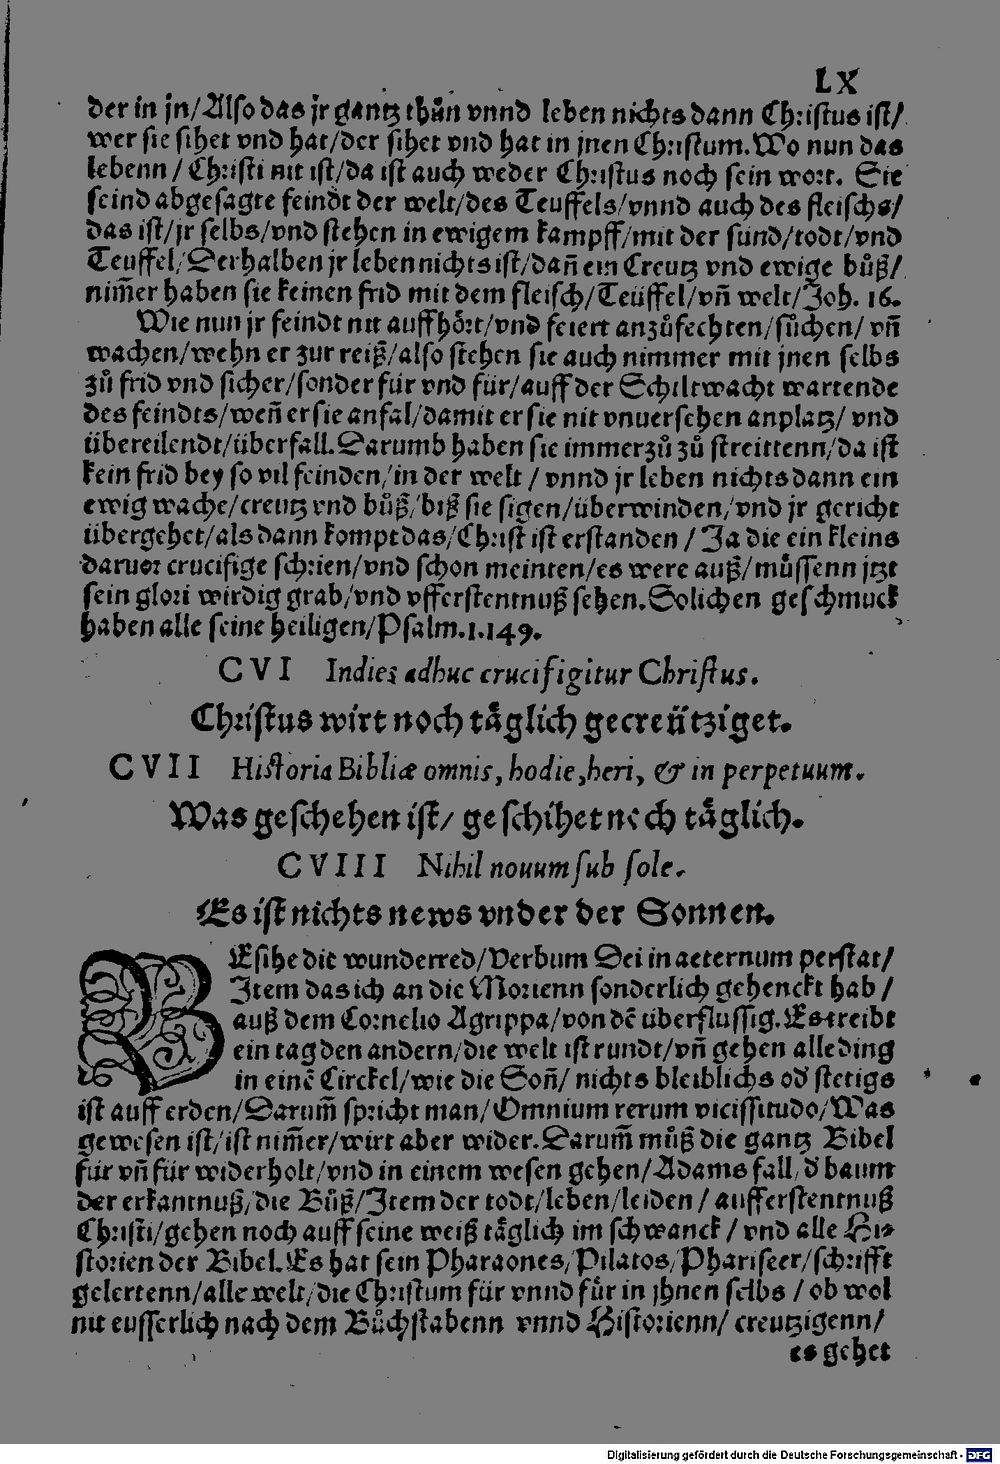 LX
der in jn/Also das jr gantz thůn vnnd leben nichts dann Christus ist/
wer sie sihet vnd hat/der sihet vnd hat in jnen Christum. Wo nun das
lebenn / Christi nit ist/da ist auch weder Christus noch sein wort. Sie
seind abgesagte feindt der welt/des Teuffels/vnnd auch des fleischs/
das ist/jr selbs/vnd stehen in ewigem kampff/mit der sünd/todt/vnd
Teuffel/Derhalben jr leben nichts ist/dañ ein Creutz vnd ewige bůß/
nim̃er haben sie keinen frid mit dem fleisch/Teüffel/vñ welt/Joh. 16.
Wie nun jr feindt nit auffhört/vnd feiert anzůfechten/sůchen/ vñ
wachen/wehn er zur reiß/also stehen sie auch nimmer mit jnen selbs
zů frid vnd sicher/sonder für vnd für/auff der Schiltwacht wartende
des feindts/weñ er sie anfal/damit er sie nit vnuersehen anplatz/ vnd
übereilendt/überfall. Darumb haben sie immerzů zů streittenn/da ist
kein frid bey so vil feinden/in der welt / vnnd jr leben nichts dann ein
ewig wache/creutz vnd bůß/biß sie sigen/überwinden/vnd jr gericht
übergehet/als dann kompt das/Christ ist erstanden / Ja die ein kleins
daruor crucifige schrien/vnd schon meinten/es were auß/müssenn jtzt
sein glori wirdig grab/vnd vfferstentnuß sehen. Solichen geschmuck
haben alle seine heiligen/Psalm.1.149.
CVI Indies adhuc crucifigitur Christus.
Christus wirt noch täglich gecreütziget.
CVII Historia Bibliæ omnis, hodie, heri, & in perpetuum.
Was geschehen ist/ geschihet noch täglich.
CVIII Nihil nouum sub sole.
Es ist nichts news vnder der Sonnen.
BEsihe die wunderred/Verbum Dei in aeternum perstat/
Item das ich an die Morienn sonderlich gehenckt hab /
auß dem Cornelio Agrippa/von dẽ überflussig. Es treibt
ein tag den andern/die welt ist rundt/vñ gehen alle ding
in einẽ Circkel/wie die Soñ/ nichts bleiblichs od̕ stetigs
ist auff erden/Darum̃ spricht man/Omnium rerum vicissitudo/Was
gewesen ist/ist nim̃er/wirt aber wider. Darum̃ můß die gantz Bibel
für vñ für widerholt/vnd in einem wesen gehen/Adams fall/d̕ baum
der erkantnuß/die Bůß/Item der todt/leben/leiden / aufferstentnuß
Christi/gehen noch auff seine weiß täglich im schwanck / vnd alle Hi-
storien der Bibel. Es hat sein Pharaones/Pilatos/Phariseer/schrifft
gelertenn/alle welt/die Christum für vnnd für in jhnen selbs / ob wol
nit eusserlich nach dem Bůchstabenn vnnd Historienn/ creutzigenn/
es gehet
Digitalisierung gefördert durch die Deutsche Forschungsgemeinschaft - DFG